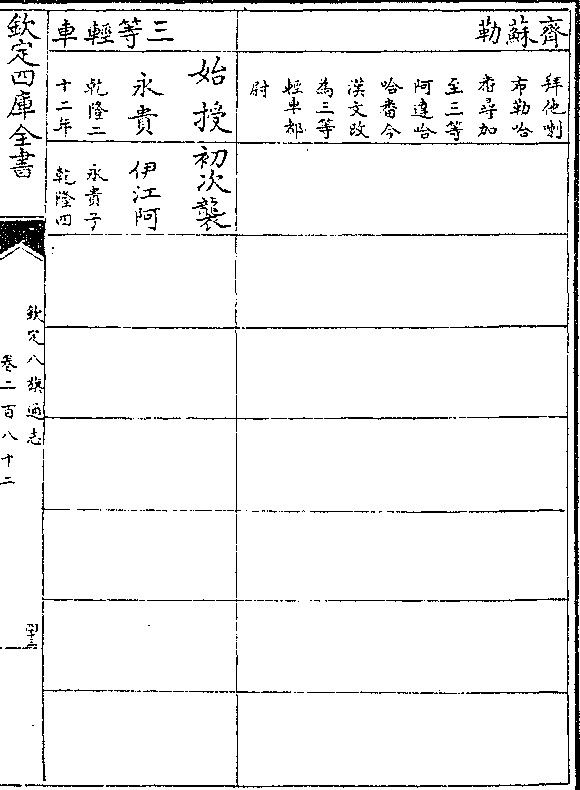 齊蘇勒
拜他喇
布勒哈
番尋加
至三等
阿達哈
哈番今
漢文改
為三等
輕車都
尉
三等輕車
始授
永貴
乾隆二
十二年
初次襲
伊江阿
永貴子
乾隆四
欽定四庫全書
欽定八旗通志
卷二百八十二